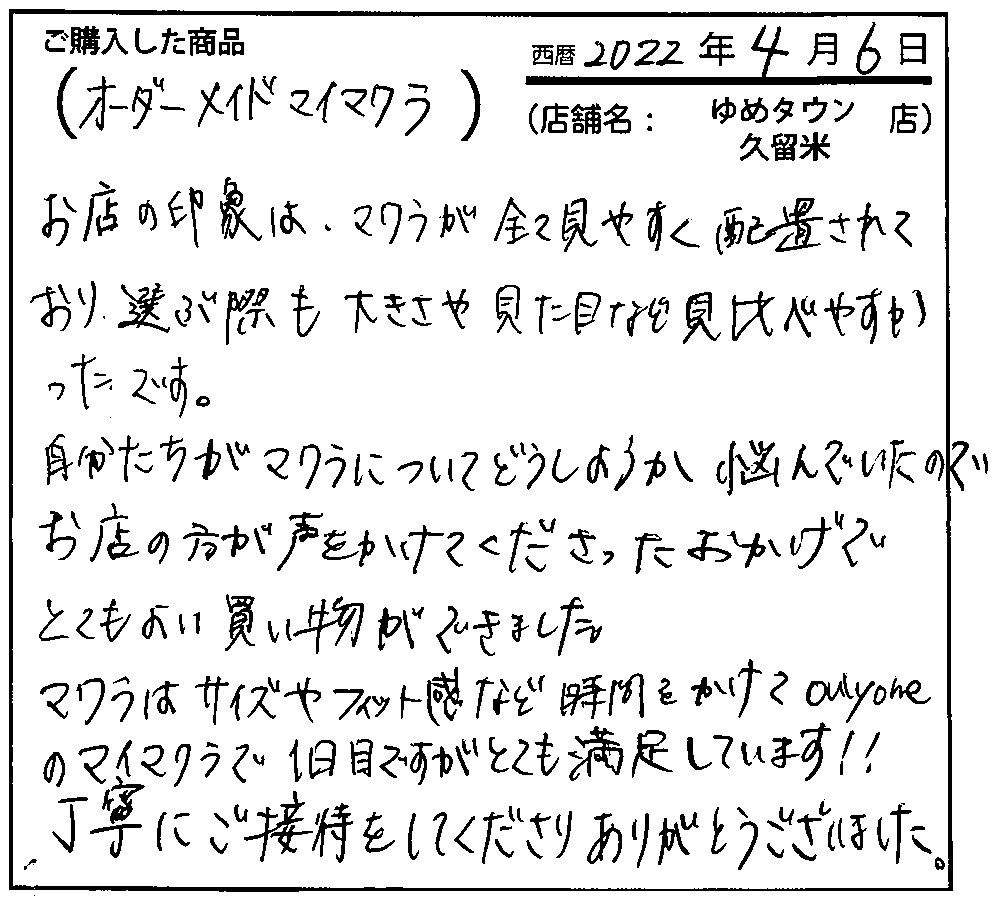 ご購入した商品
西暦 2022 年 4 月 6 日
(オーダーメイドマイマクラ)
(店舗名: ゆめタウン 久留米 店)
お店の印象は、マクラが全て見やすく配置されて
おり、選ぶ際も大きさや見た目など見比べやすか
ったです。
自分たちがマクラについてどうしようか悩んでいたので
お店の方が声をかけてくださったおかげで
とてもよい買い物ができました。
マクラはサイズやフィット感など時間をかけて onlyone
のマイマクラで1日目ですがとても満足しています!!
丁寧にご接待をしてくださりありがとうございました。